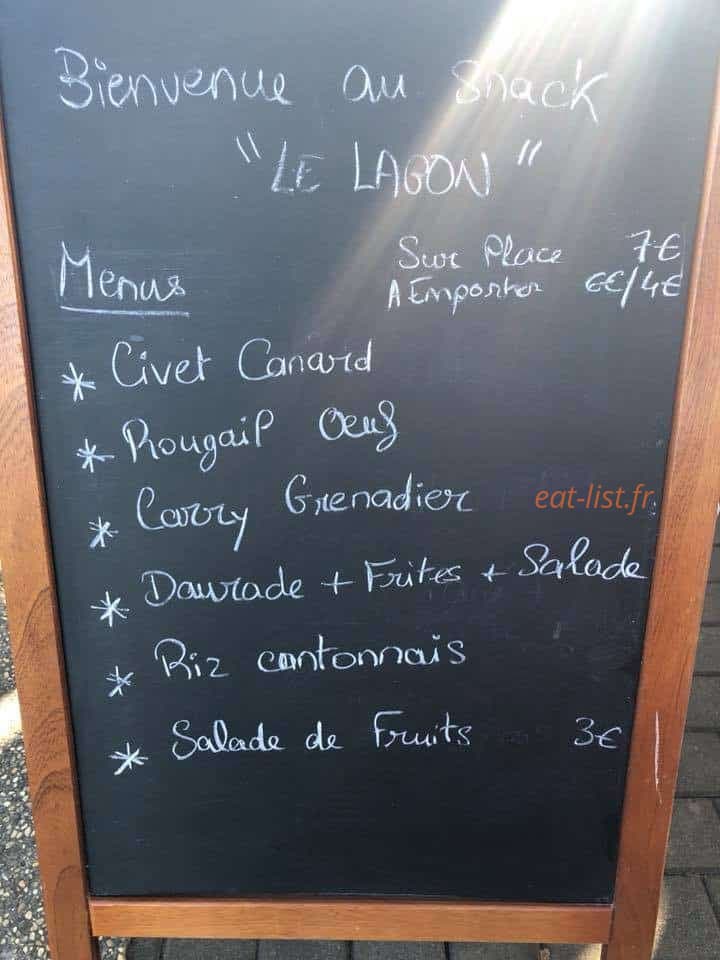 Bienvenue au Snack
"LE LAGON"
Menus
Sur Place 7€
A Emporter 6€/4€
* Civet Canard
* Rougail Oeuf
* Carry Grenadier
eat-list.fr
* Daurade + Frites + Salade
* Riz cantonnais
* Salade de Fruits 3€